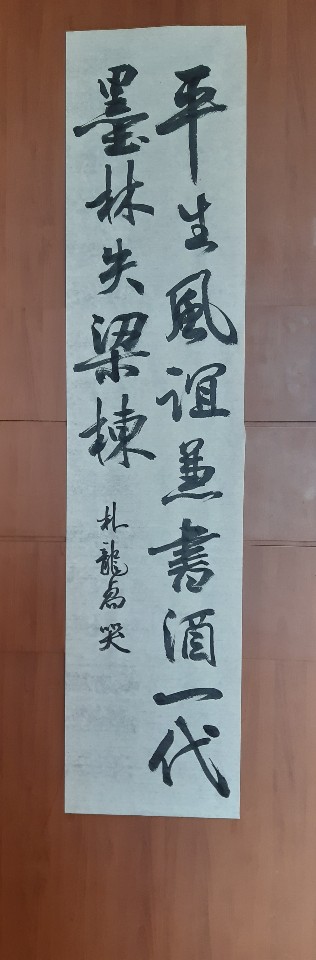 平生風誼兼書酒一代
墨林失梁棟
朴龍為哭